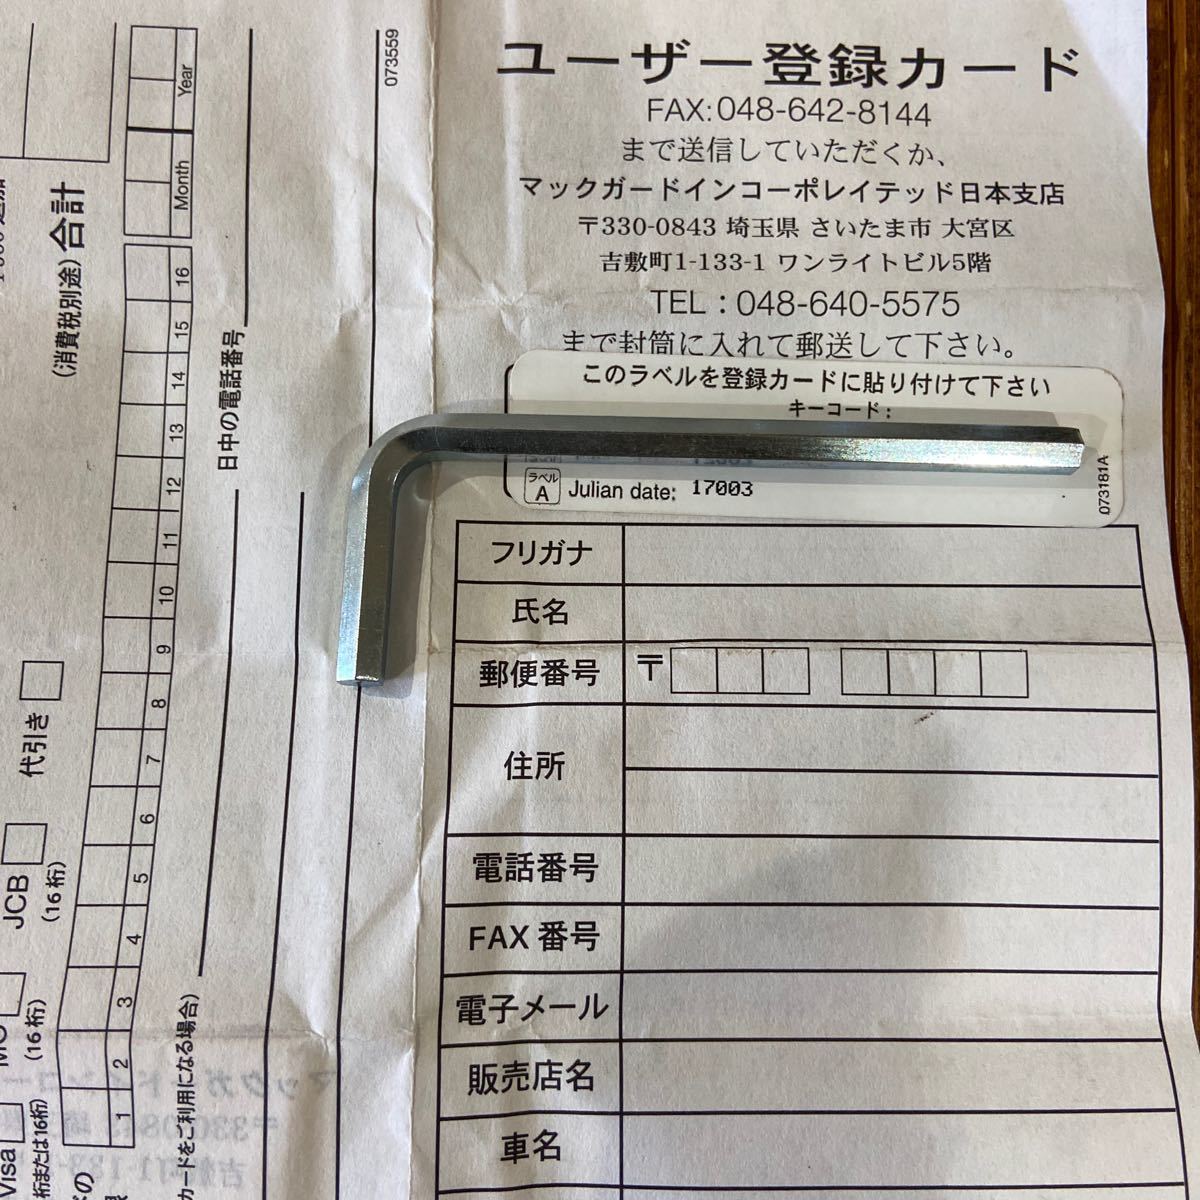 ユーザー登録カード
FAX:048-642-8144
まで送信していただくか、
マックガードインコーポレイテッド日本支店
〒330-0843 埼玉県 さいたま市 大宮区
吉敷町1-133-1 ワンライトビル5階
TEL：048-640-5575
まで封筒に入れて郵送して下さい。
このラベルを登録カードに貼り付けて下さい
キーコード：
ラベル
A
Julian date: 17003
073181A
フリガナ
氏名
郵便番号 〒
住所
電話番号
FAX 番号
電子メール
販売店名
車名
073559
日中の電話番号
カードをご利用になる場合)
Month Year
1 2 3 4 5 6 7 8 9 10 11 12 13 14 15 16
(消費税別途) 合計
代引き
JCB
(16 桁)
(16 桁)
Visa
桁または16桁)